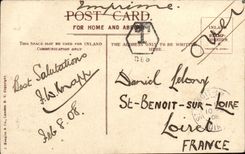 Imprimé
POST CARD.
FOR HOME AND ABROAD
Over
THIS SPACE MAY BE USED FOR INLAND
COMMUNICATION ONLY
THE ADDRESS ONLY TO BE WRITTEN HERE.
T
Best Salutations
Feb 8. 08.
Daniel
St-BENOIT-SUR-LOIRE
Loiret
FRANCE